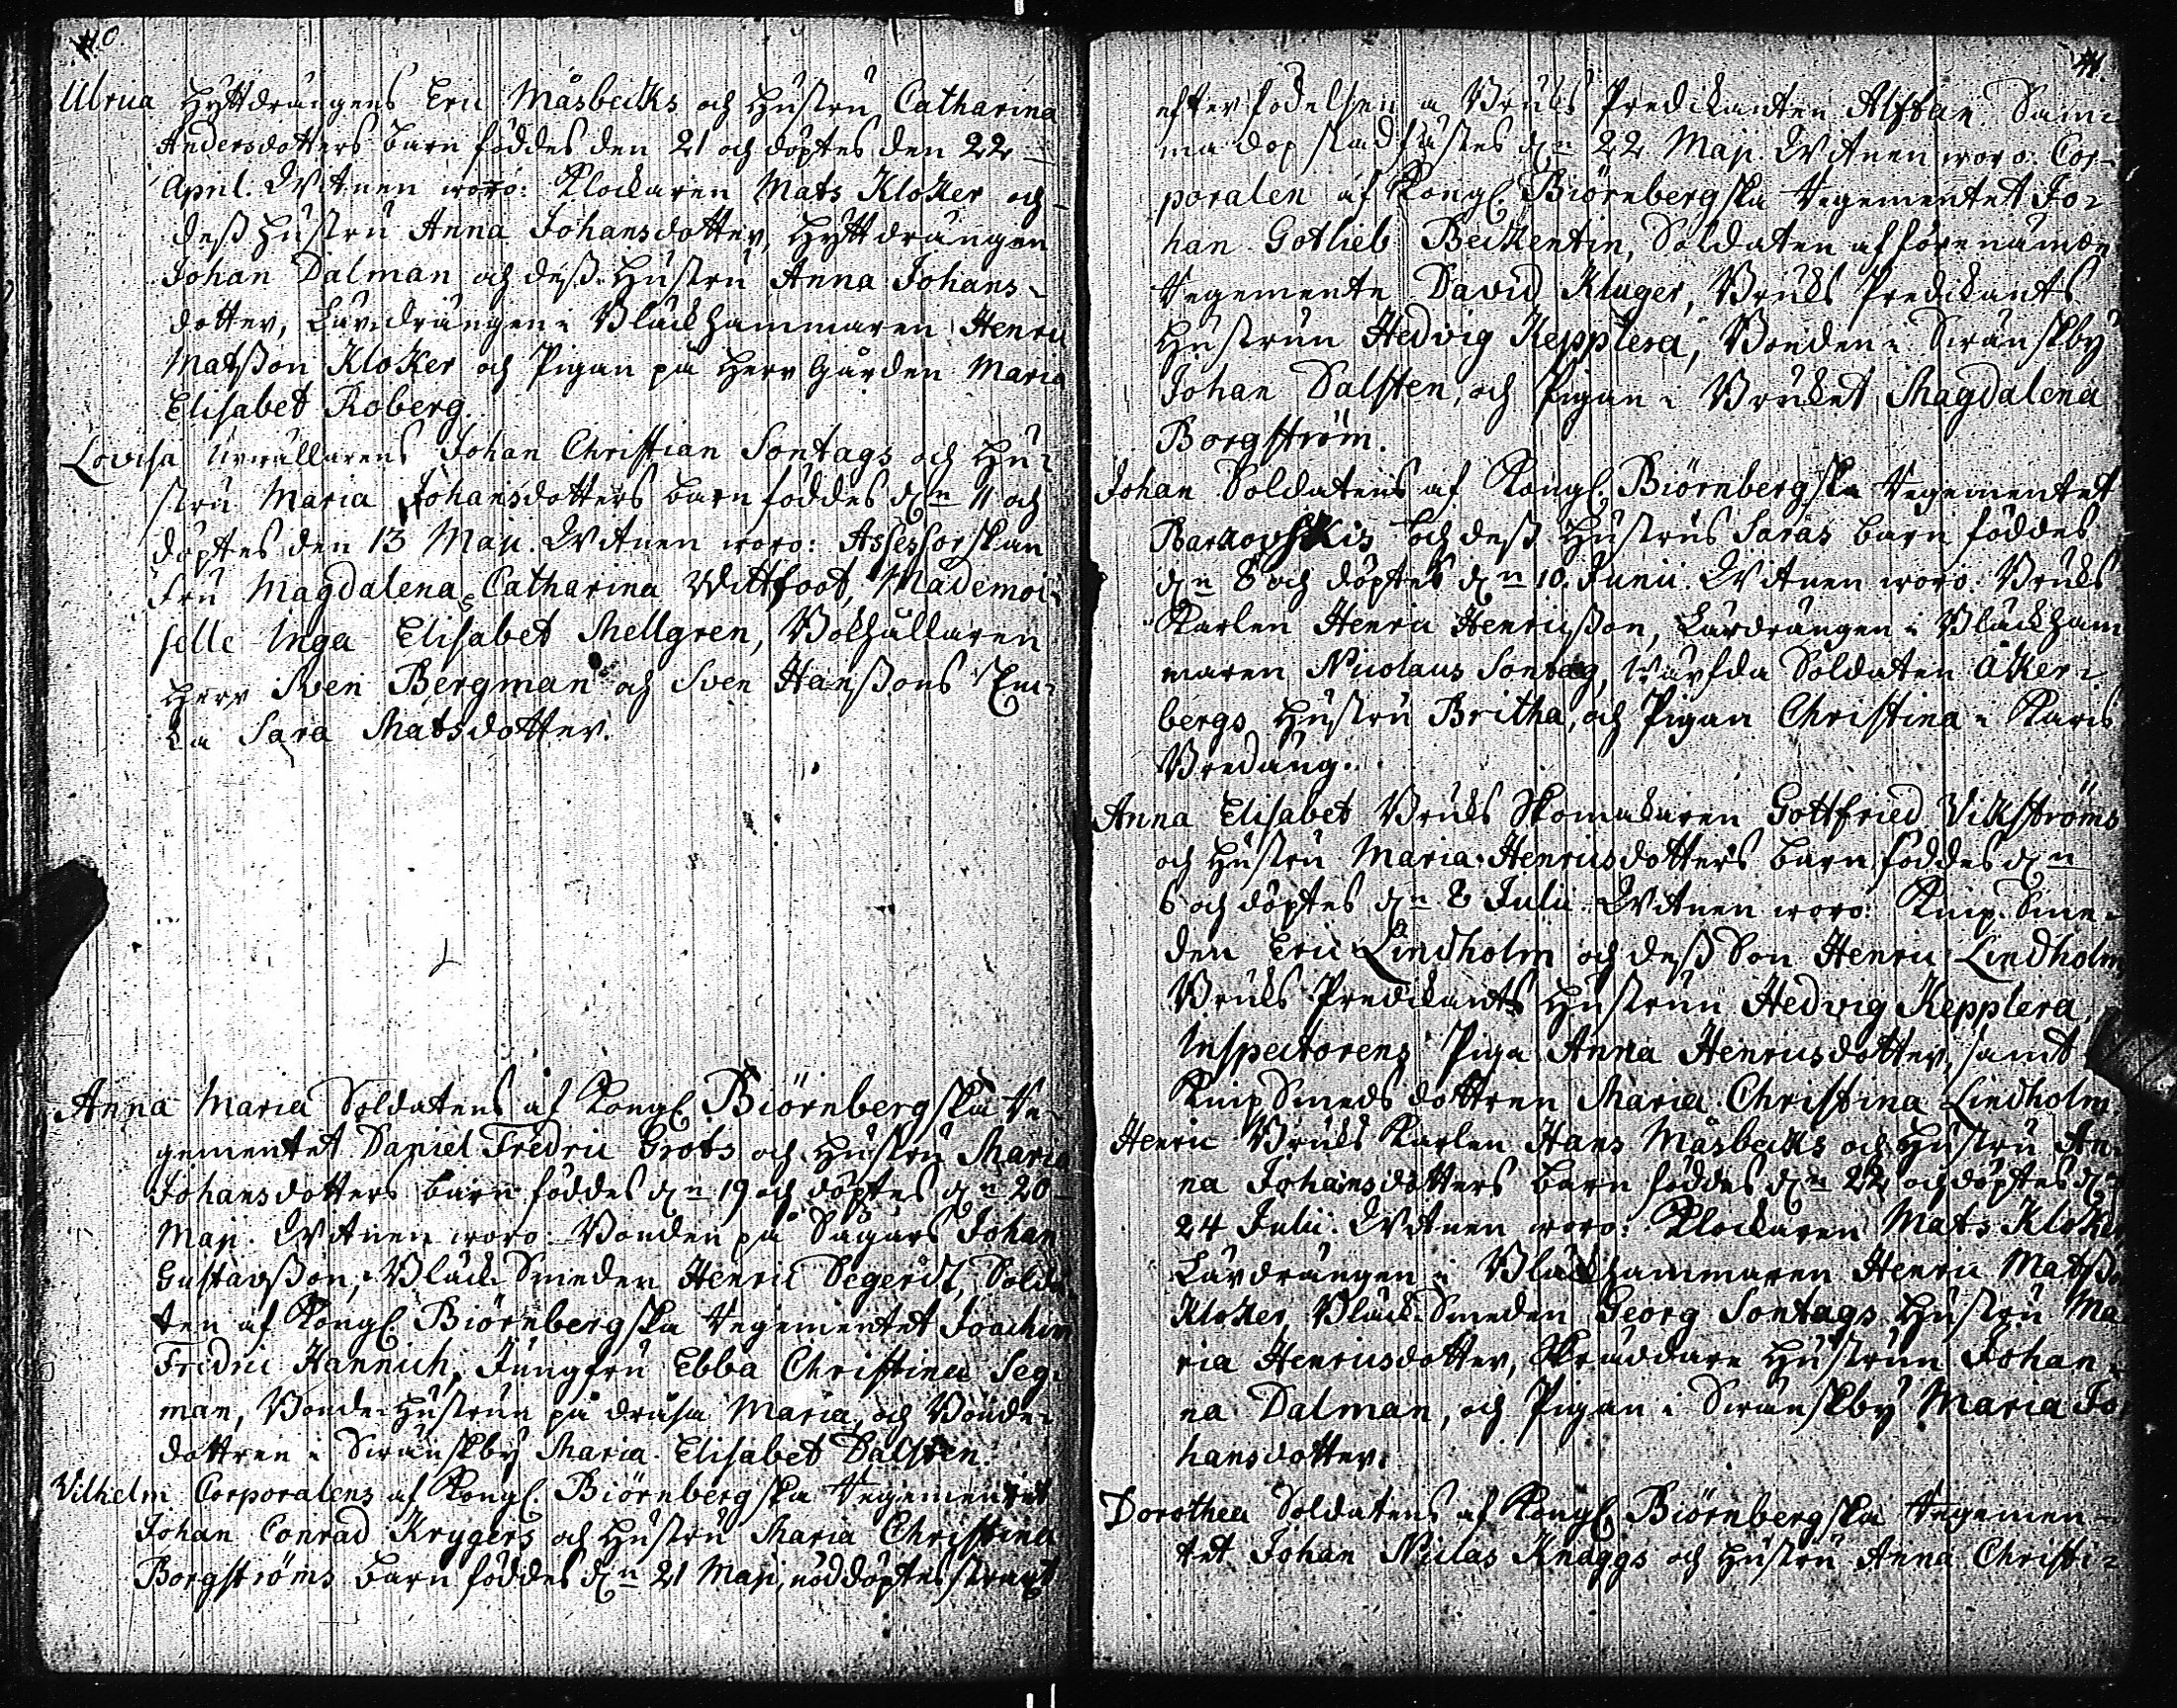 40.
Ulrica Hyttdrängens Eric Måsbecks och Hustru Catharina
Andersdotters barn föddes den 21 och döptes den 22
April. Witnen woro: Klockaren Mats Klöker och
dess Hustru Anna Johansdotter, Hyttdrängen
Johan Dalman och dess Hustru Anna Johans-
dotter, Lärdrängen i Bläckhammaren Henric
Matsson Kloker och Pigan på HerrGården Maria
Elisabet Roberg.
Lovisa Urwällarens Johan Christian Sontags och Hu-
stru Maria Johansdotters barn föddes den 11 och
döptes den 13 Maji. Witnen woro: Assessorskan
Fru Magdalena Catharina Wittfoot, Mademoi-
selle Inga Elisabet Mellgren, Bokhållaren
Herr Sven Bergman och Sven Hanssons En-
ka Sara Matsdotter.
Anna Maria Soldatens af Kongl. Biörnebergska Re-
gementet Daniel Fredric Grots och Hustru Maria
Johansdotters barn föddes den 19 och döptes den 20
Maji. Witnen woro: Bonden på Sågars Johan
Gustavsson, Bläck Smeden Henric Segerst, Solda-
ten af Kongl. Biörnebergska Regementet Joachim
Fredric Hannich, Jungfru Ebba Christina Seg-
man, Bonde-Hustrun på Maria, och Bonde-
dottren i Swänskby Maria Elisabet Dalsten.
Vilhelm Corporalens af Kongl. Biörnebergska Regementet
Johan Conrad Krygers och Hustru Maria Christina
Borgströms barn föddes den 21 Maji, nöddöptes strax
41.
efter födelsen a Bruks Predikanten Alftan. Sam-
ma dop stadfästes den 22 Maji. Witnen woro: Cor-
poralen af Kongl. Biörnebergska Regementet Jo-
han Gotlieb Beckentin, Soldaten af förenämde
Regemente David Kluger, Bruks Predikants
Hustrun Hedvig Kepplera, Bonden i Swänskby
Johan Dalsten, och Pigan i Bruket Magdalena
Borgström.
Johan Soldatens af Kongl. Biörnebergska Regementet
Barkovskis och dess Hustrus Saras barn föddes
den 8 och döptes den 10. Junii. Witnen woro: Bruks
Karlen Henric Henricsson, Lärdrängen i Bläckham
maren Nicolaus Sontag, Soldaten Åker-
bergs Hustru Britha, och Pigan Christina i Karis
Bredäng.
Anna Elisabet Bruks Skomakaren Gottfried Vikströms
och Hustru Maria Henricsdotters barn föddes den
6 och döptes den 8 Julii. Witnen woro: Knip-Sme-
den Eric Lindholm och dess Son Henric Lindholm
Bruks Predikants Hustrun Hedvig Kepplera,
Inspectorens Piga Anna Henricsdotter, samt
Knip Smeds dottren Maria Christina Lindholm.
Henric Bruks Karlen Hans Måsbecks och Hustru An-
na Johansdotters barn föddes den 22 och döptes den
24 Julii. Witnen woro: Klockaren Mats Kloker
Lärdrängen i Bläckhammaren Henric Matsso
Kloker, Bläck-Smeden Georg Sontags Hustru Ma
ria Henricsdotter, Skräddare Hustrun Johan-
na Dalman, och Pigan i Swänskby Maria Jo
hansdotter.
Dorothea Soldatens af Kongl. Biörnebergska Regemen-
tet Johan Niclas Knaggs och Hustru Anna Christi-